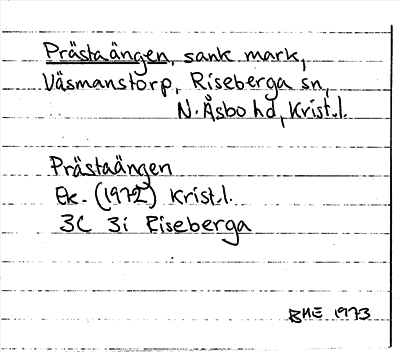 Prästaängen, sank mark,
Väsmanstorp, Riseberga sn,
N. Åsbo hd, Krist.l.
Prästaängen
Ek. (1972) Krist.l.
3C 3i Riseberga
BME 1973